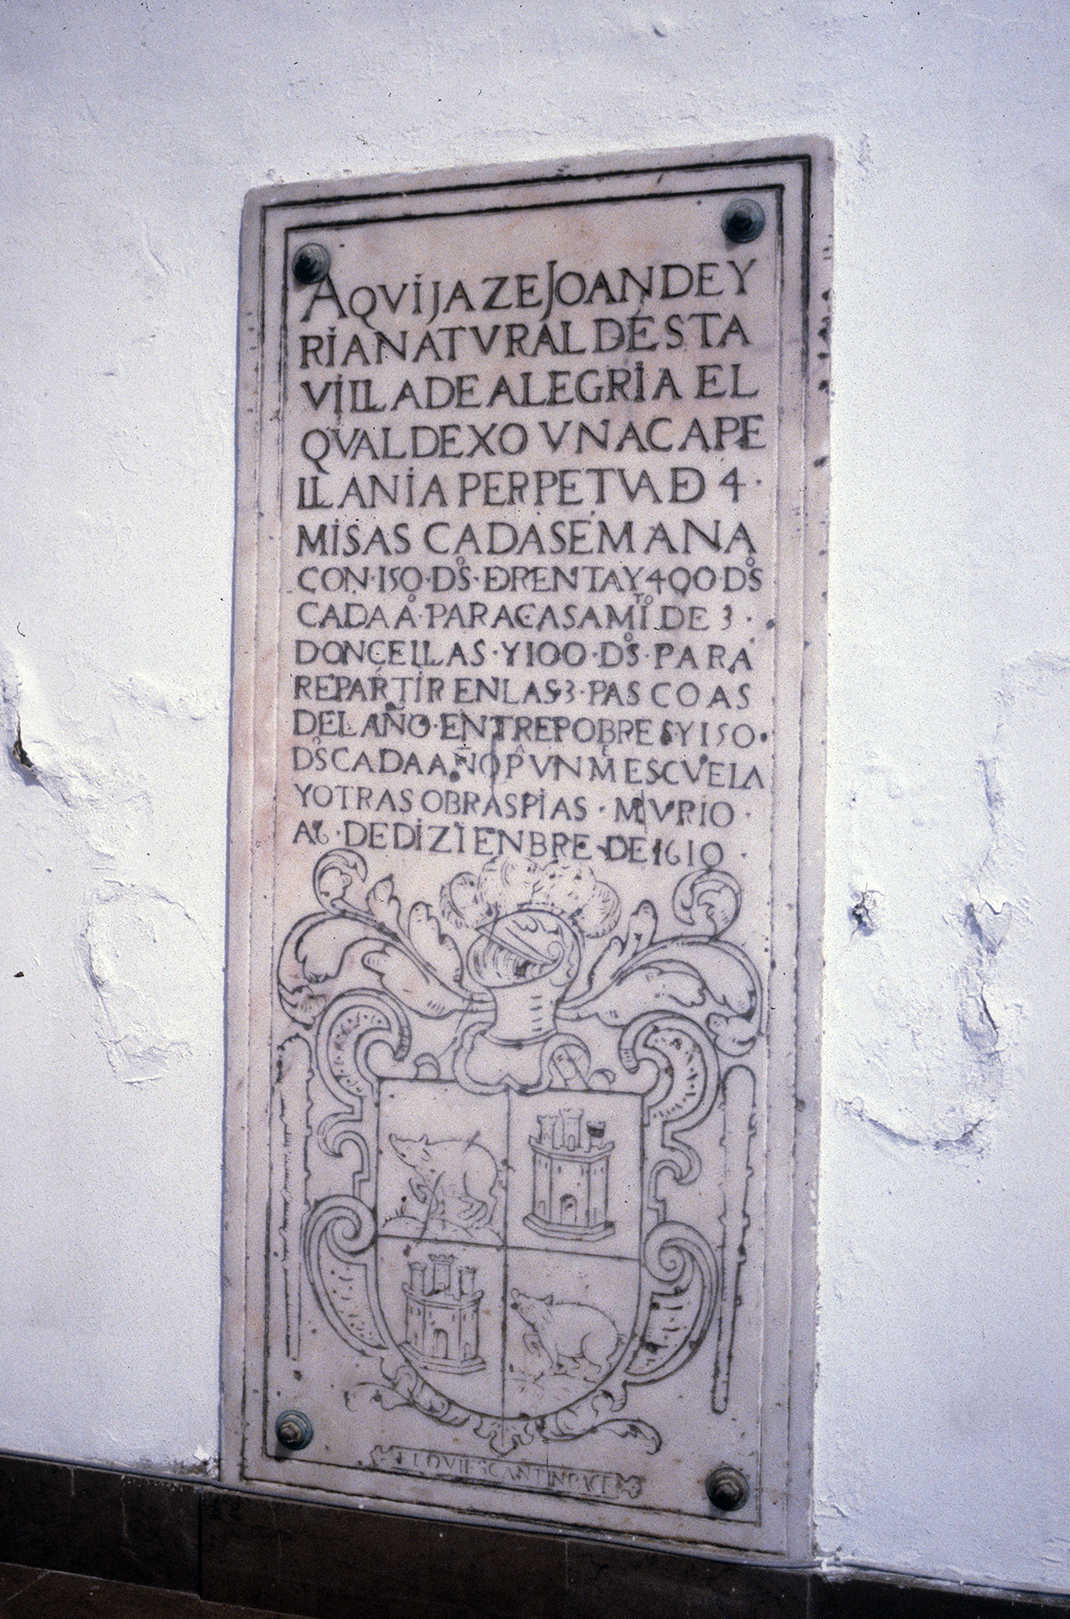 AQVIJAZEJOANDEY
RIANATVRALDESTA
VILLADEALEGRIA EL
QVALDEXO VNACAPE
LLANIA PERPETVA D 4·
MISAS CADASEMANA
CON·150·Dºs·DRENTAY400·Dºs
CADAAº·PARACASAMTº.DE 3·
DONCELLAS·Y100·Dºs·PARA
REPARTIR ENLAS·3·PASCOAS
DEL AÑO·ENTREPOBRES·Y150·
DºsCADAAÑO PVNMº ESCVELA
YOTRAS OBRASPIAS·MVRIO·
A6·DEDIZIENBRE·DE1610·
REQVIESCANTINPACE